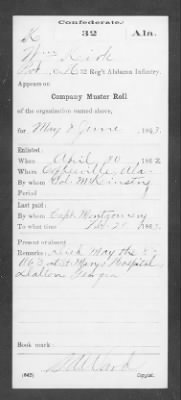 Confederate.
K 32 Ala.
Wm
32 Reg't Alabama Infantry.
Appears on
Company Muster Roll
of the organization named above,
for May & June, 1863.
Enlisted:
When April 30, 1862.
Where Coffeeville, Ala.
By whom Col. McKinstry
Period
Last paid:
By whom Capt. Montgomery
To what time 1863.
Present or absent
Remarks: Died May the
1863 at St Mary's Hospital
Dalton Georgia
Book mark:
(642) Copyist.